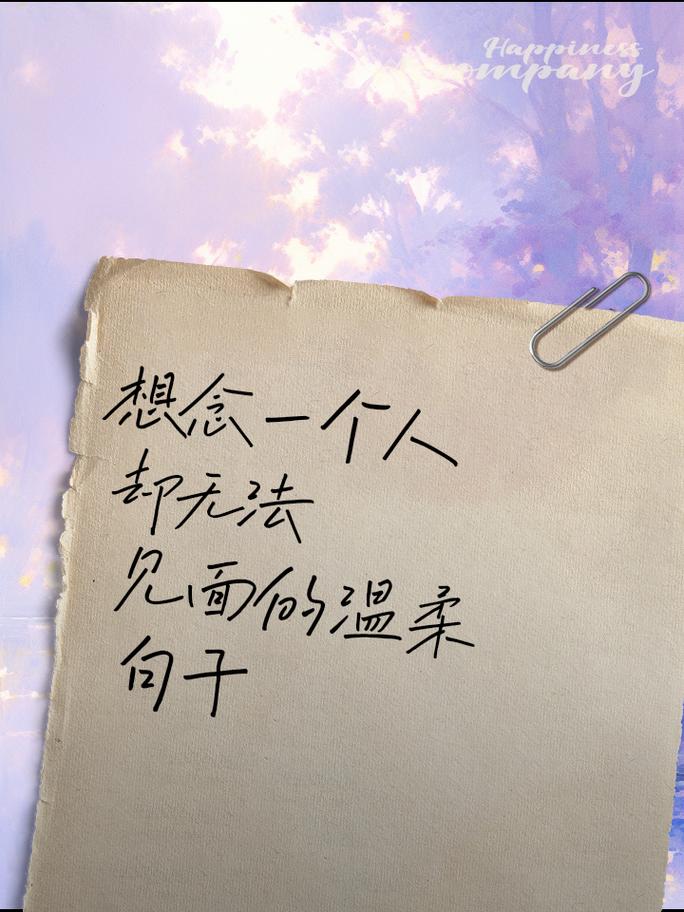 Happiness
ompany
想念一个人
却无法
见面的温柔
句子